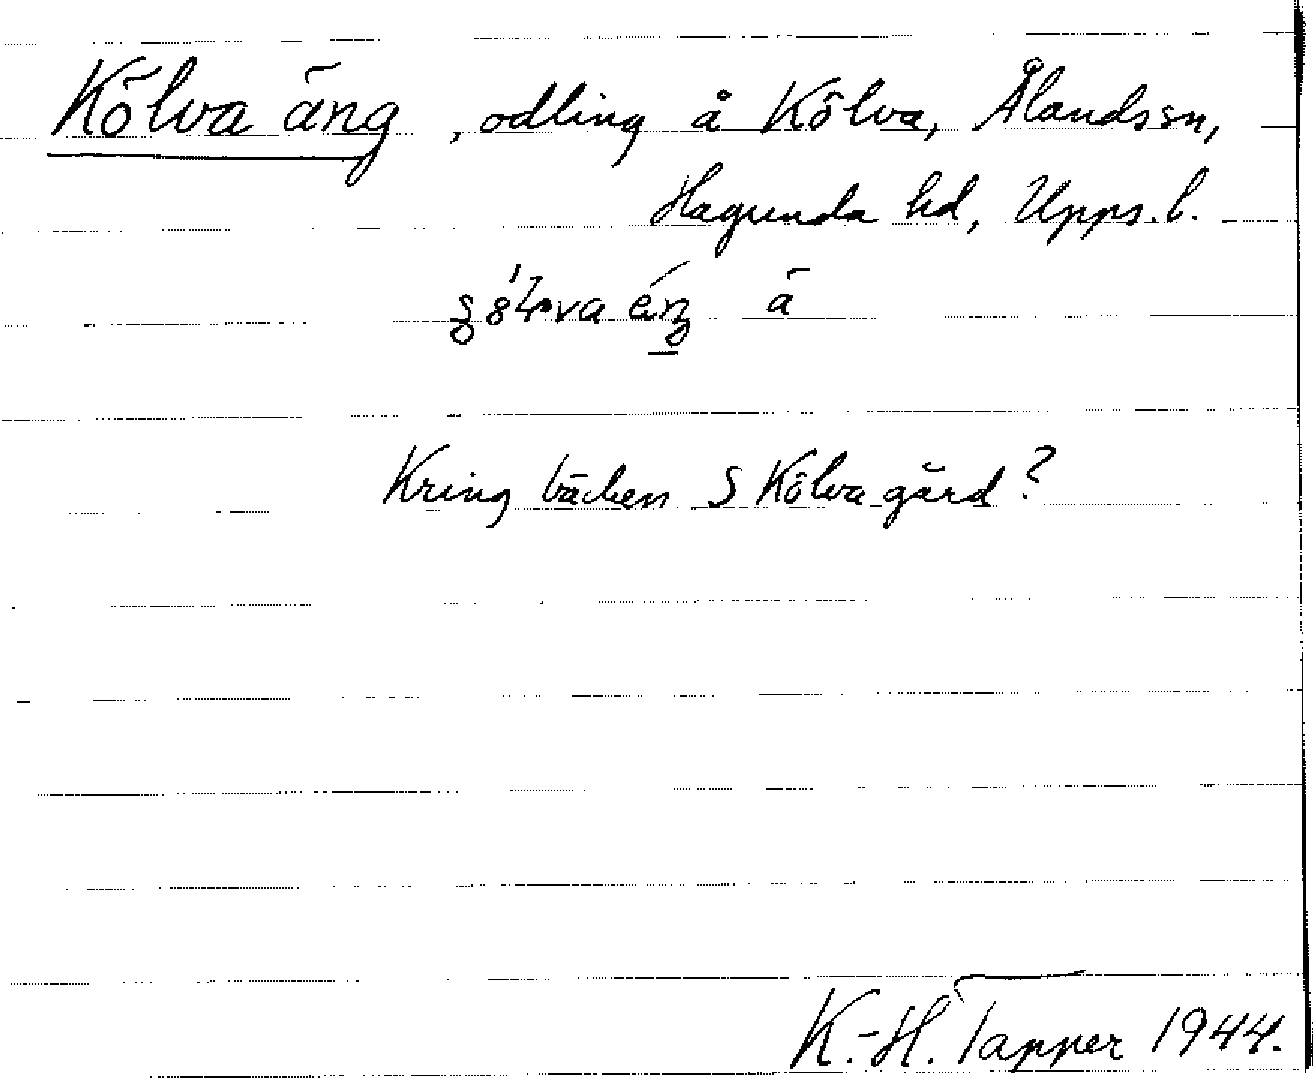 Kölva äng, odling å Kölva, Ålands sn,
Hagunda hd, Upps. l.
å
Kring bäcken S Kölva gård?
K.-H. Tapper 1944.